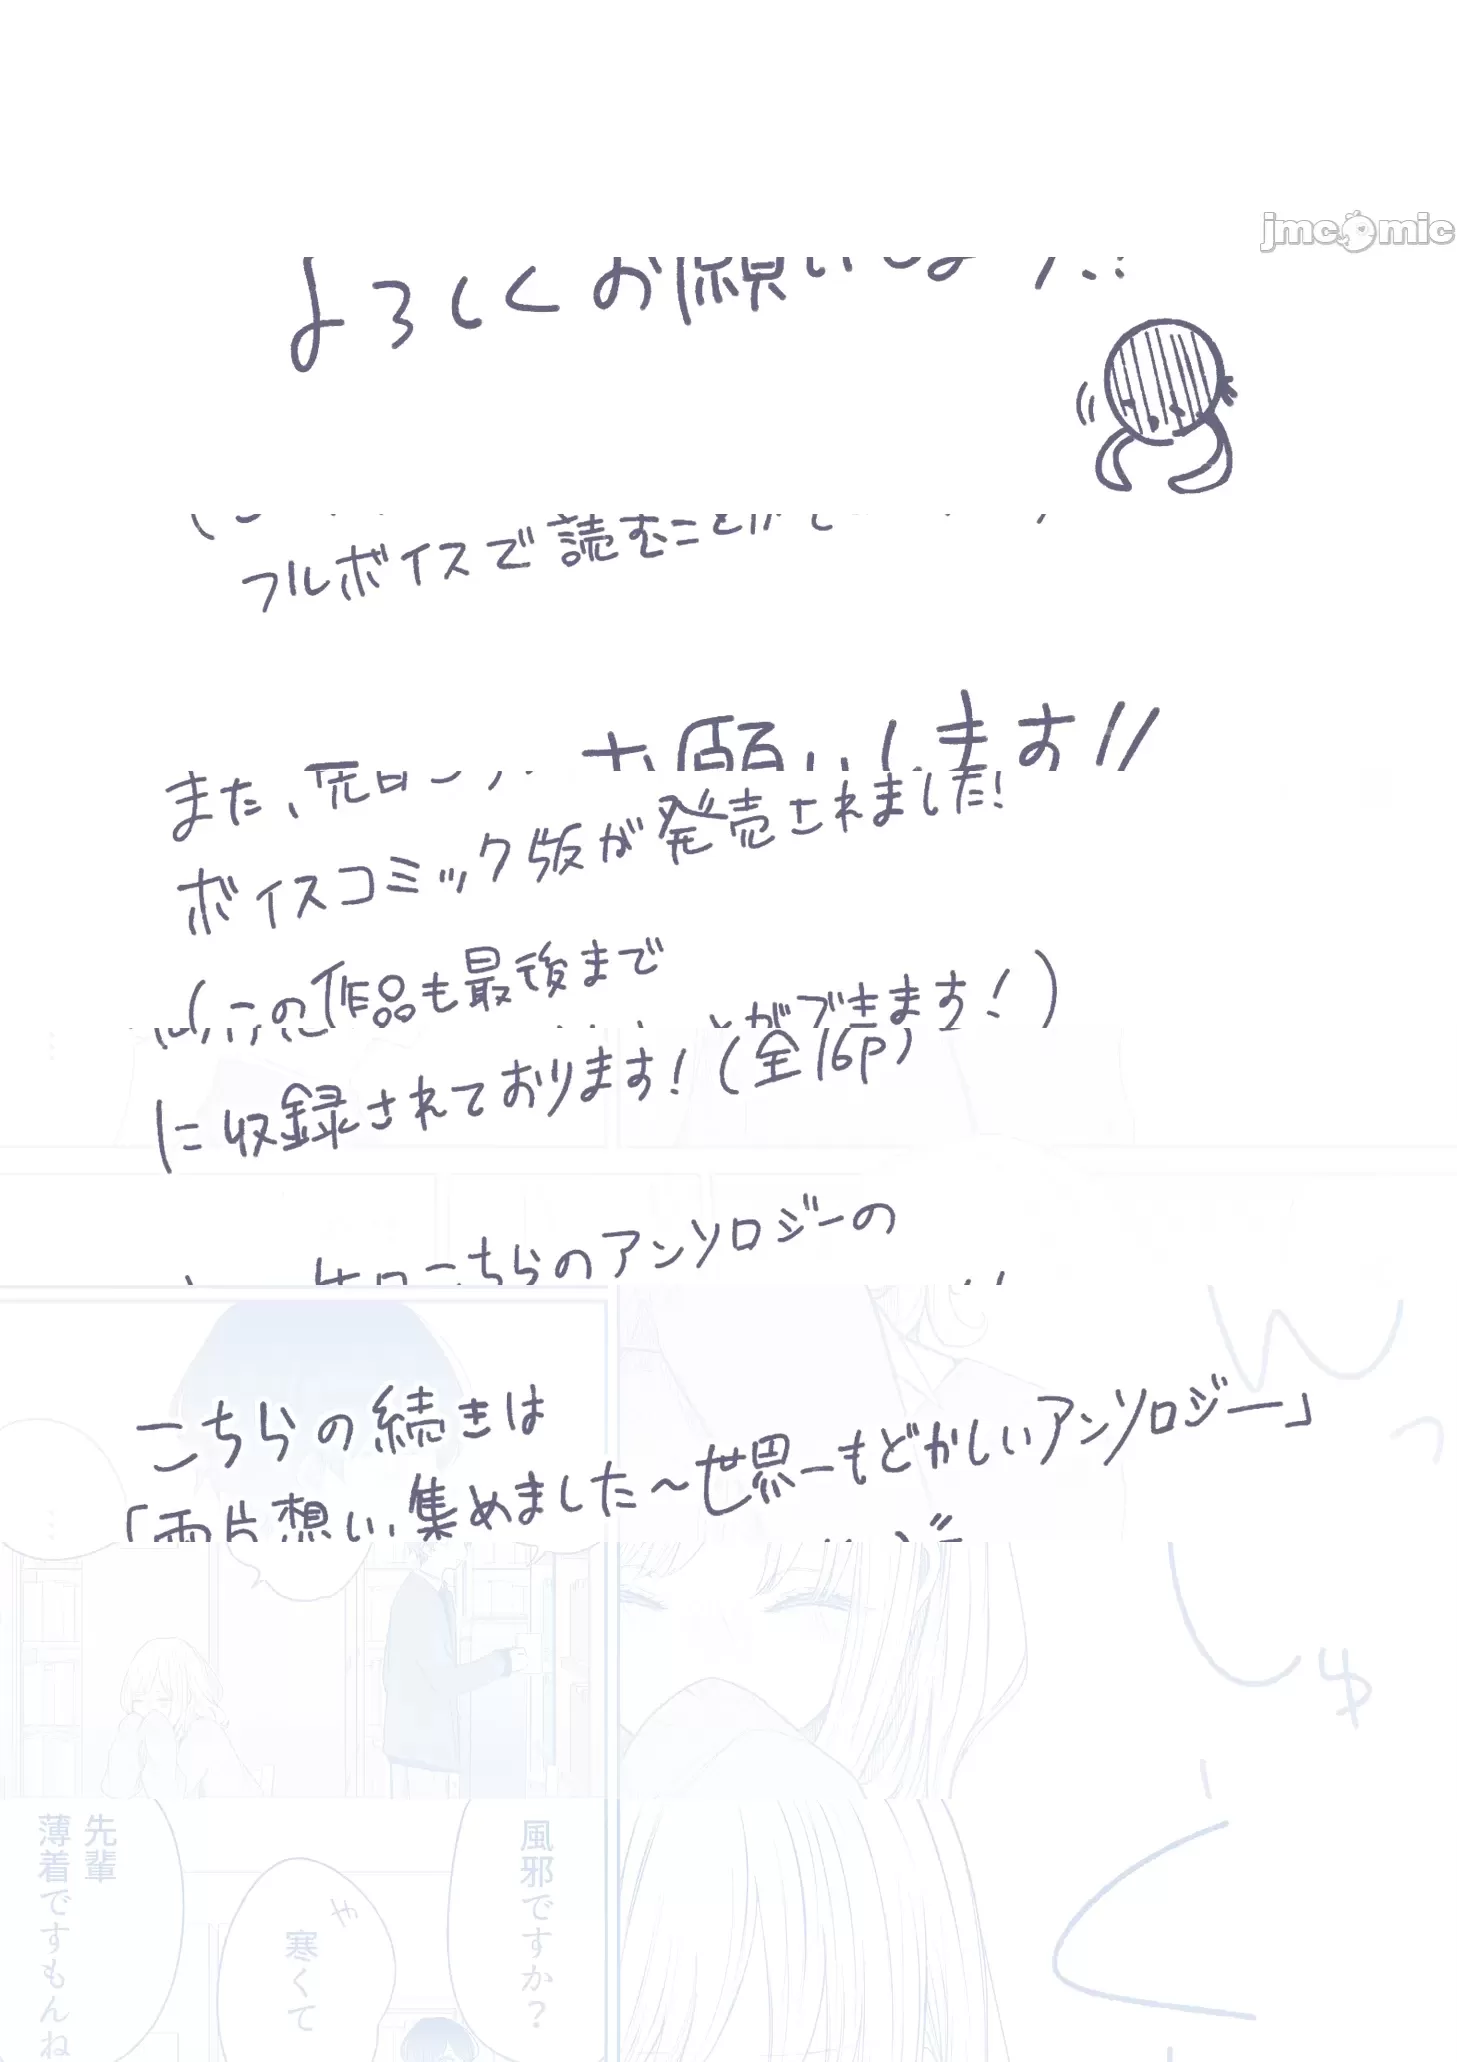 jmcomic
よろしくお願いします!!
フルボイスで読むことが
お願いします!!
また、先日
ボイスコミック版が発売されました!
(この作品も最後まで
ができます!)
に収録されております!(全16P)
こちらのアンソロジーの
こちらの続きは
「両片想い、集めました～世界一もどかしいアンソロジー」
…
くしゅんっ
風邪ですか?
や
寒くて
先輩
薄着ですもんね